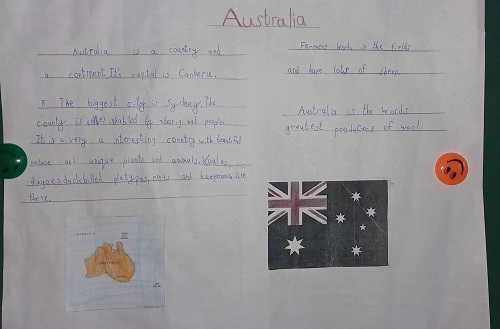 Australia
Australia is a country and
a continent. It's capital is Canbera.
The biggest city is Sydney. The
county is inhabited by aboriginal people.
It is a very a interesting country with beautiful
nature and unique plants and animals. Koalas,
dingoes, duckbilled platypus, emus and kangaroos live
there.
Farmers work in the fields
and have lots of sheep.
Australia is the words
greatest producens of wool.